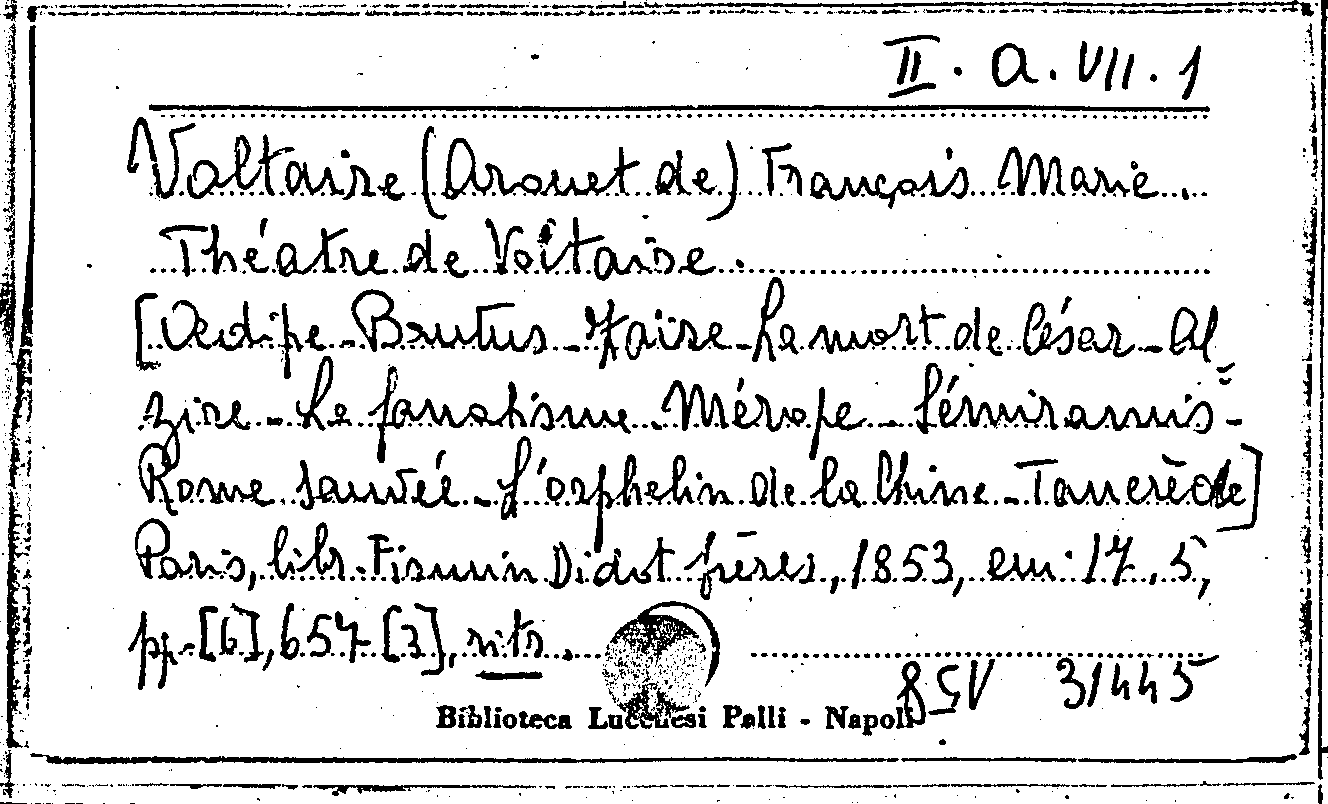 II. a. VII. 1
Voltaire (Arouet de) François Marie.
Théatre de Voltaire.
[Oedipe - Brutus - Zaire - La mort de César - Al=
zire - Le fanatisme - Mérope - Sémiramis -
Rome sauvée - L'orphelin de la Chine - Tancrède]
Paris, libr. Firmin Didot frères, 1853, cm. 17,5,
pp. [6], 657 [3], ritr.
31445
Biblioteca Lucchesi Palli - Napoli